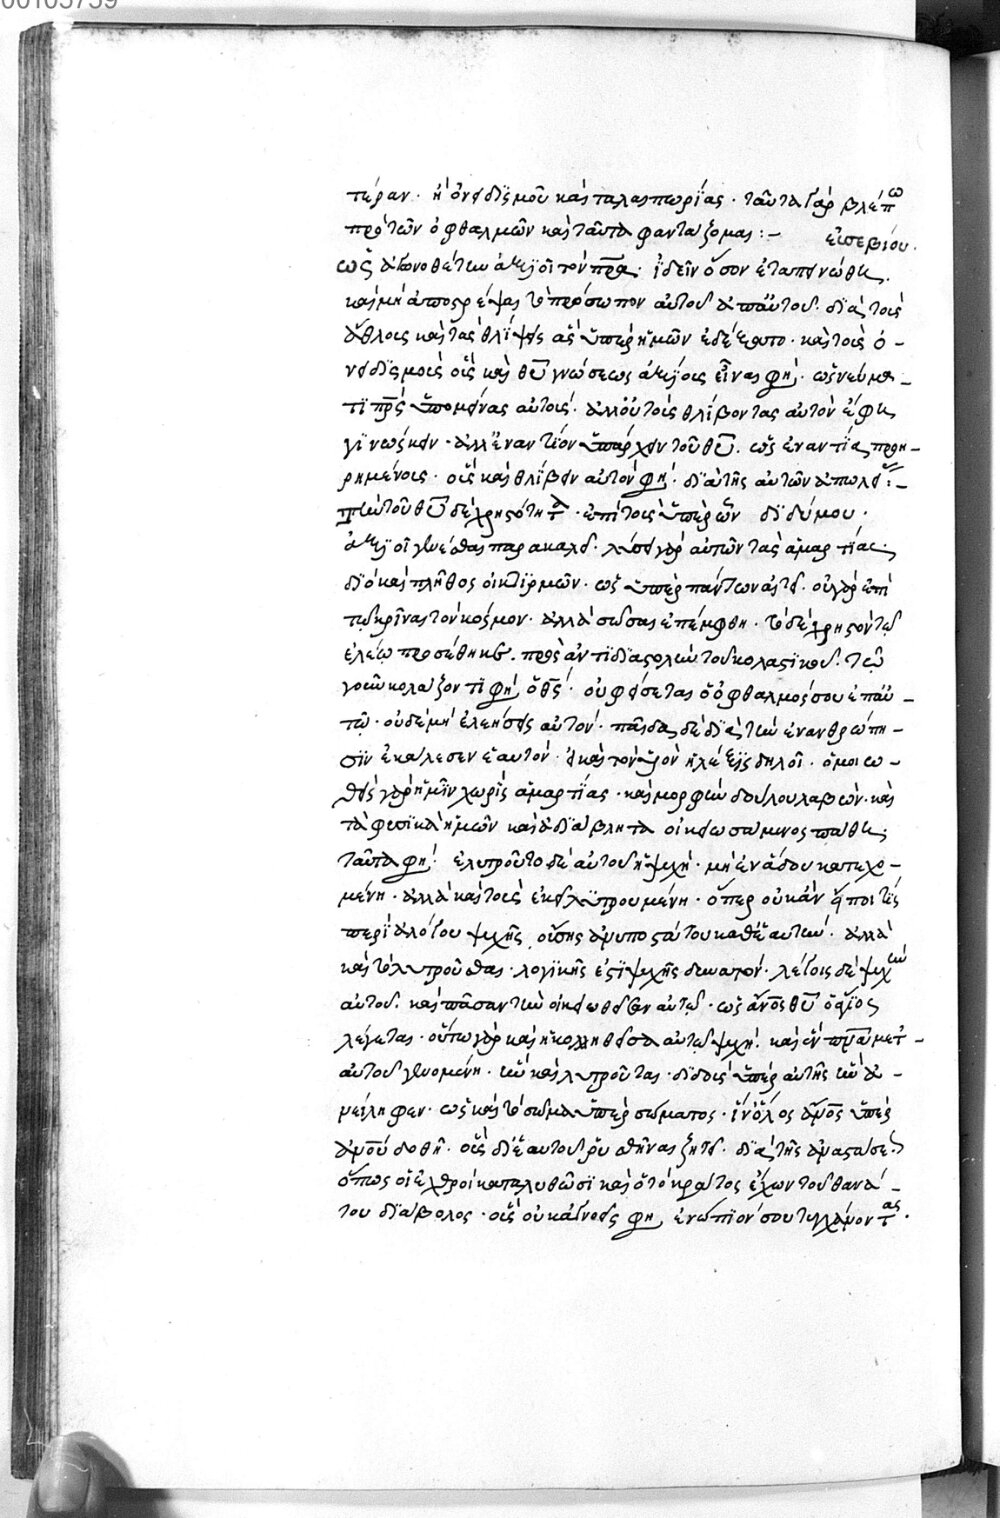 τέραν · ἢ ὀνειδισμοῦ καὶ ταλαιπωρίας · ταῦτα γὰρ βλέπω
πρὸ τῶν ὀφθαλμῶν καὶ ταῦτα φαντάζομαι :– εὐσεβίου ·
ὡς ἀγωνοθέτην ἀξιοῖ τὸν πρα · ἰδεῖν ὅσον ἐταπεινώθη ·
καὶ μὴ ἀποστρέψαι τὸ πρόσωπον αὐτοῦ ἀπ' αὐτοῦ · διὰ τοὺς
ἄθλους καὶ τὰς θλίψεις ἃς ὑπὲρ ἡμῶν ἐδέξατο · καὶ τοὺς ὀ–
νειδισμοὺς οὓς καὶ θυ γνώσεως ἀξίους εἶναι φη · ὡς
πρὸς ὑπομείνας αὐτούς · ἀλλ' οὐ τοὺς θλίβοντας αὐτὸν ἔφη
γινώσκειν · ἀλλ' ἐναντίον ὑπάρχειν τοῦ θυ · ὡς ἐναντία προῃ–
ρημένους · οὓς καὶ θλίβειν αὐτὸν φη · διὰ τῆς αὐτῶν ἀπωλεί :–
τοῦ θυ δὲ χρηστότητα · ἐπὶ τοὺς ὑπὲρ ὧν διδύμου ·
ἀξιοῖ γενέσθαι παρακαλεῖ · λύσει γὰρ αὐτῶν τὰς ἁμαρτίας ·
διὸ καὶ πλῆθος οἰκτιρμῶν · ὡς ὑπὲρ πάντων αἰτεῖ · οὐ γὰρ ἐπὶ
τῷ κρῖναι τὸν κόσμον · ἀλλὰ σῶσαι ἐπέμφθη · τὸ δὲ χρηστὸν τῷ
ἐλέῳ προσέθηκε · πρὸς ἀντιδιαστολὴν τοῦ κολαστικοῦ · τῷ
γοῦν κολάζοντί φη ὁ θς · οὐ φείσεται ὁ ὀφθαλμός σου ἐπ' αὐ–
τῷ · οὐδὲ μὴ ἐλεήσεις αὐτόν · παῖδα δὲ διὰ τὴν ἐνανθρώπη–
σιν ἐκάλεσεν ἑαυτόν · δηλοῖ · ὁμοιω–
θεὶς γὰρ ἡμῖν χωρὶς ἁμαρτίας · καὶ μορφὴν δούλου λαβών · καὶ
τὰ φυσικὰ ἡμῶν καὶ ἀδιάβλητα οἰκειωσάμενος πάθη ·
ταῦτα φη · ἐλυτροῦτο δὲ αὐτοῦ ἡ ψυχὴ · μὴ ἐν ᾅδου κατεχο–
μένη · ἀλλὰ καὶ τοὺς ἐκεῖ λυτρουμένη · ὅπερ οὐκ ἂν εἴποι τις
περὶ ἀλόγου ψυχῆς, οὔσης ἀνυποστάτου καθ' ἑαυτήν · ἀλλὰ
καὶ τὸ λυτροῦσθαι · λογικῆς ἐστὶ ψυχῆς δυνατόν · λέγοις δὲ ψυχὴν
αὐτοῦ · καὶ πᾶσαν τὴν οἰκειωθεῖσαν αὐτῷ · ὡς ἄνος θυ ὁ ἅγιος
λέγεται · οὕτω γὰρ καὶ ἡ κολληθεῖσα αὐτῷ ψυχὴ · καὶ ἓν πνα μετ–
αὐτοῦ γενομένη · ἣν καὶ λυτροῦται · διδοὺς ὑπὲρ αὐτῆς ἣν ἀ–
νείληφεν · ὡς καὶ τὸ σῶμα ὑπὲρ σώματος · ἵν' ὅλος ἄνος ὑπὲρ
ἀνου δοθῇ · οὓς δι' ἑαυτοῦ ῥυσθῆναι ζητεῖ · διὰ τῆς ἀναστάσε ·
ὅπως οἱ ἐχθροὶ καταλυθῶσι καὶ ὁ τὸ κράτος ἔχων τοῦ θανά–
του διάβολος · οὓς οὐκ ἀγνοεῖς φη ἐνώπιόν σου τυγχάνοντας ·